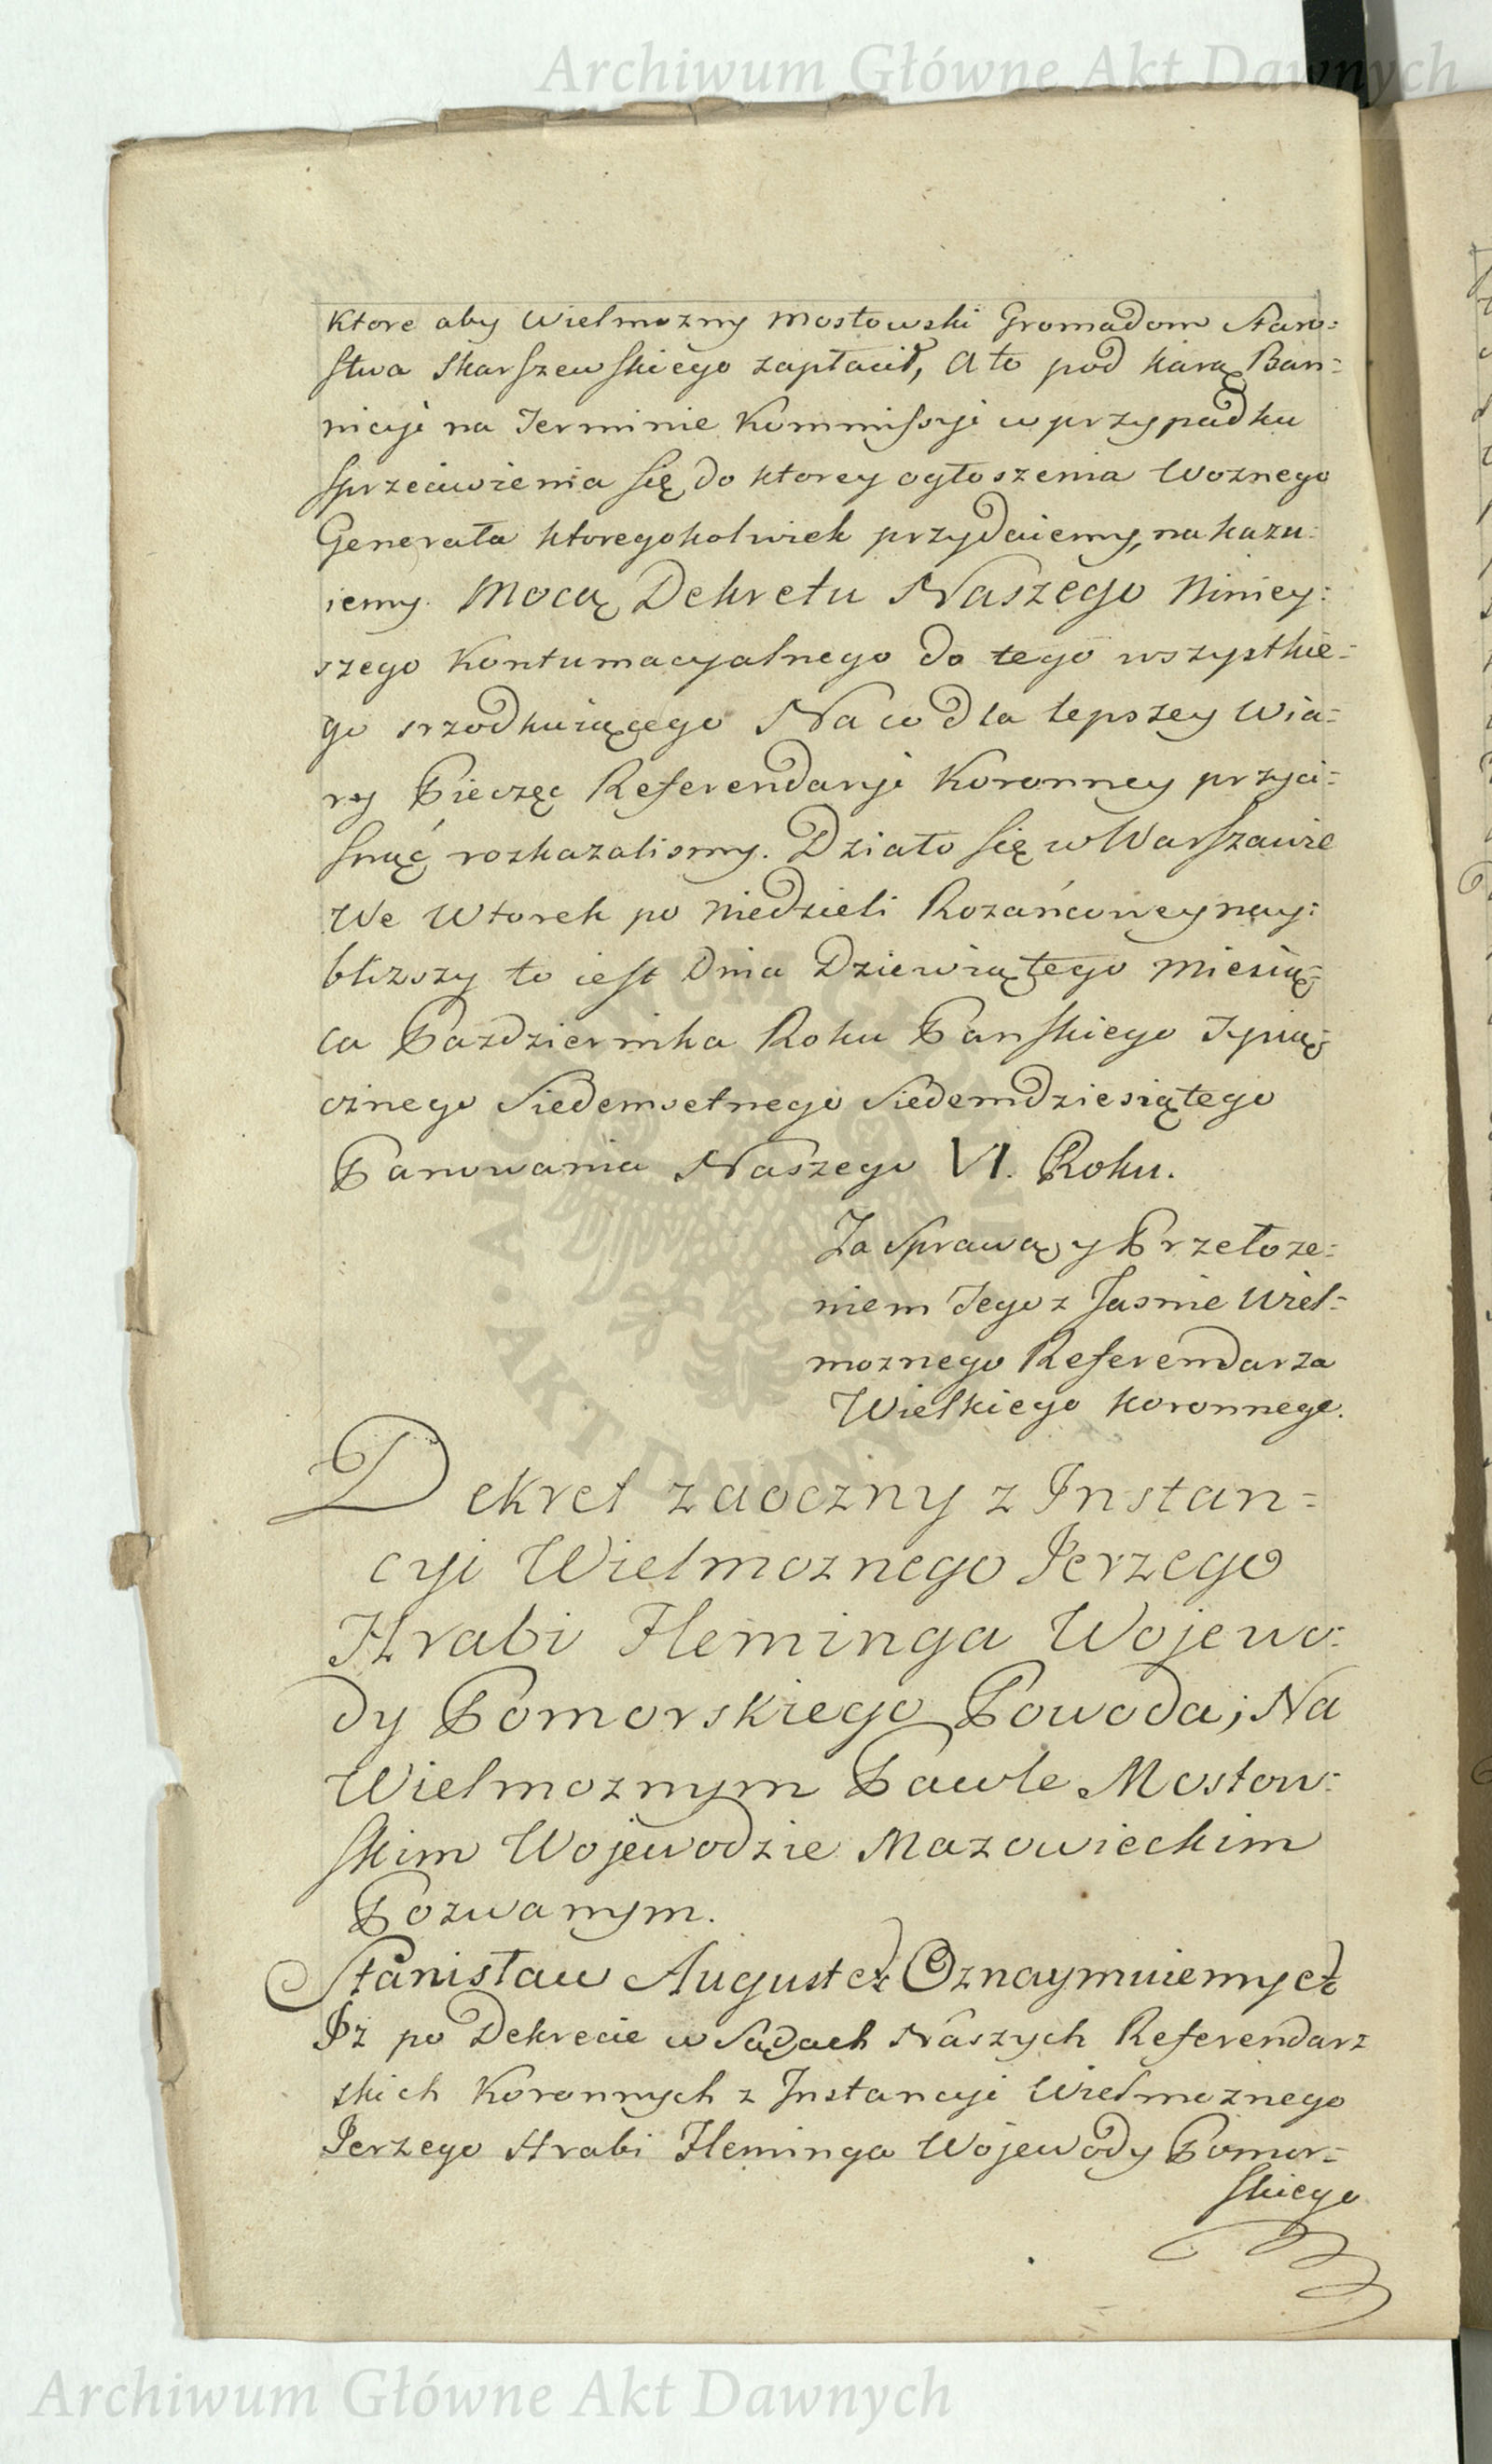 Archiwum Główne Akt Dawnych
Ktore aby Wielmozny Mostowski Gromadom Staro=
stwa Skarszewskiego zapłacił, A to pod karą Ban=
nicyi na Terminie Kommissyi w przypadku
sprzeciwienia się do ktorey ogłoszenia Woznego
Generała ktoregokolwiek przydaiemy, nakazu=
iemy. Mocą Dekretu Naszego Niniey=
szego Kontumacyalnego do tego wszystkie=
go srzodkuiącego Na co dla lepszey Wia=
ry Pieczęc Referendaryi Koronney przyci=
snąć rozkazalismy. Działo się w Warszawie
We Wtorek po Niedzieli Rozańcowey nay=
blizszy to iest Dnia Dziewiątego Miesią=
ca Pazdziernika Roku Panskiego Tysią=
cznego Siedemsetnego Siedemdziesiątego
Panowania Naszego VI. Roku.
Za Sprawą y Przełoze=
niem Tegoz Jasnie Wiel=
moznego Referendarza
Wielkiego Koronnego.
Dekret zaoczny z Instan=
cyi Wielmoznego Jerzego
Hrabi Fleminga Wojewo=
dy Pomorskiego Powoda; Na
Wielmoznym Pawle Mostow=
skim Wojewodzie Mazowieckim
Pozwanym.
Stanisław August etc Oznaymuiemy etc
Jz po Dekrecie w Sądach Naszych Referendarz
skich Koronnych z Instancyi Wielmoznego
Jerzego Hrabi Fleminga Wojewody Pomor=
skiego
Archiwum Główne Akt Dawnych